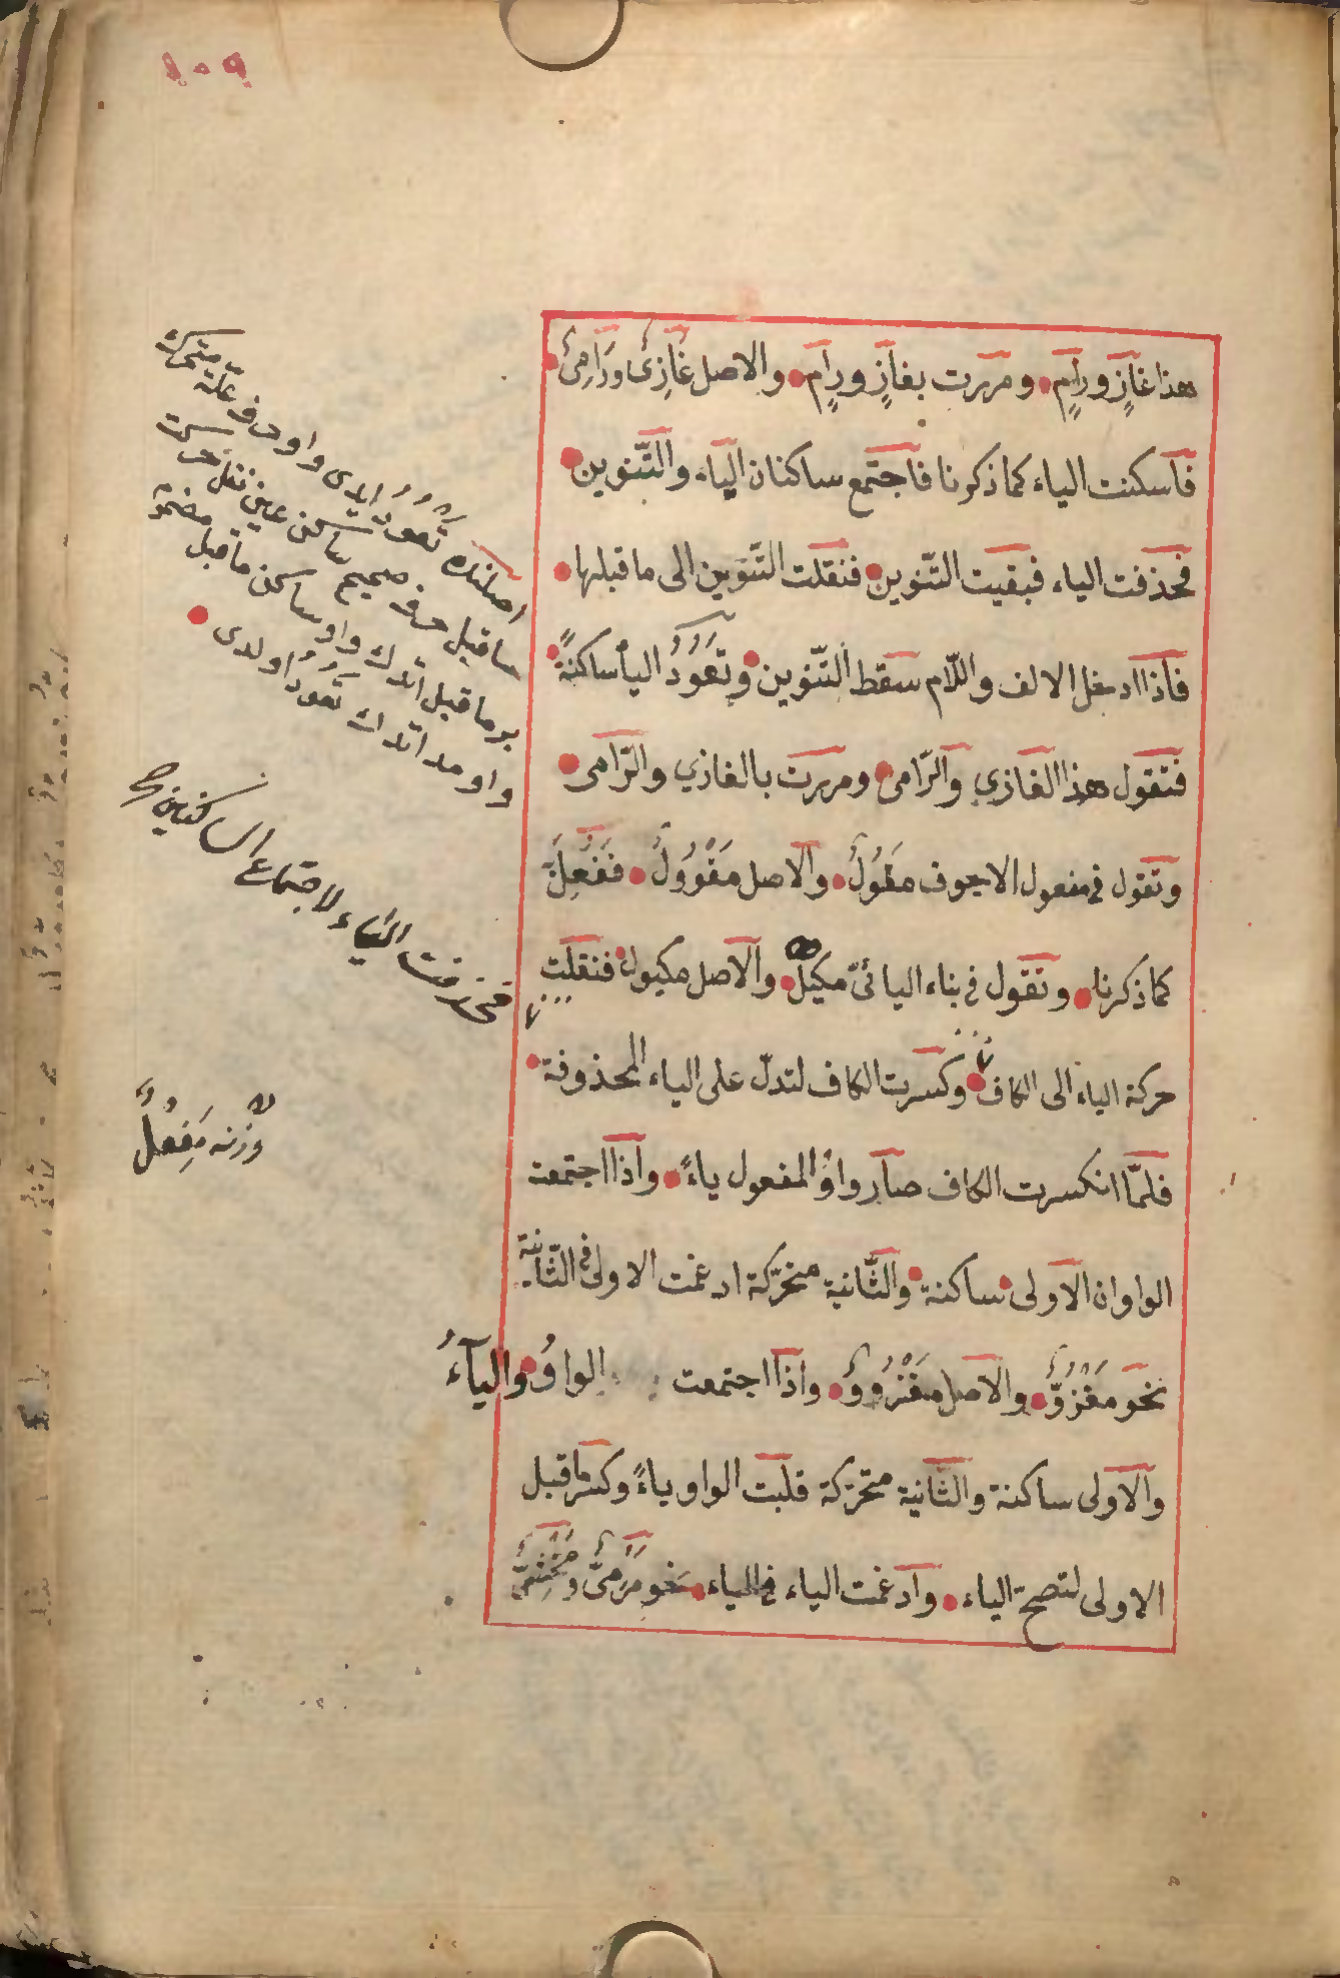 ١٠٩
هذا غَازٍ ورامٍ ومررت بغازٍ ورامٍ والاصل غَازِىٌ ورَامِىٌ
فاسكنت الياء كما ذكرنا فاجتمع ساكنان الياء والتّنوين
فحذفت الياء فبقيت التّنوين فنقلت التّنوين الى ما قبلها
فاذا ادخل الالف واللّام سقط التّنوين وتَعُودُ الياُ ساكنةً
فتقول هذا الغازي والرّامى ومررت بالغازي والرّامى
وتقول فى مفعول الاجوف مَقُولٌ والاصل مَقْوُولٌ ففُعِلَ
كما ذكرنا وتقول فى بناء اليائىّ مكيلٌ والاصل مكيول فنقلت
حركة الياء الى الكاف وكسرت الكاف لتدلّ على الياء المحذوفة
فلمّا انكسرت الكاف صار واوُ المفعول ياءً واذا اجتمعت
الواوان الاولى ساكنة والثّانية متحرّكة ادغمت الاولى فى الثّانية
نحو مَغْزُوٌّ والاصل مَغْزُووٌ واذا اجتمعت الواوُ والياءُ
والاولى ساكنة والثّانية متحرّكة قلبت الواو ياءً وكسر ما قبل
الاولى لتصحّ الياء وادغمت الياء فى الياء نحو مَرْمِىٌّ ومَخْشِىٌّ
اصلنده تَعْوُدُ ايدى واو حرف علّة متحرك
ماقبل حرف صحيح ساكن عين نقل حركت
بر ماقبل اتدك واو ساكن ماقبل مضموم
واو مد اتدك تَعُودُ اولدى
فحذفت الياء لاجتماع الساكنين صح
وزنه مَفِعْلٌ